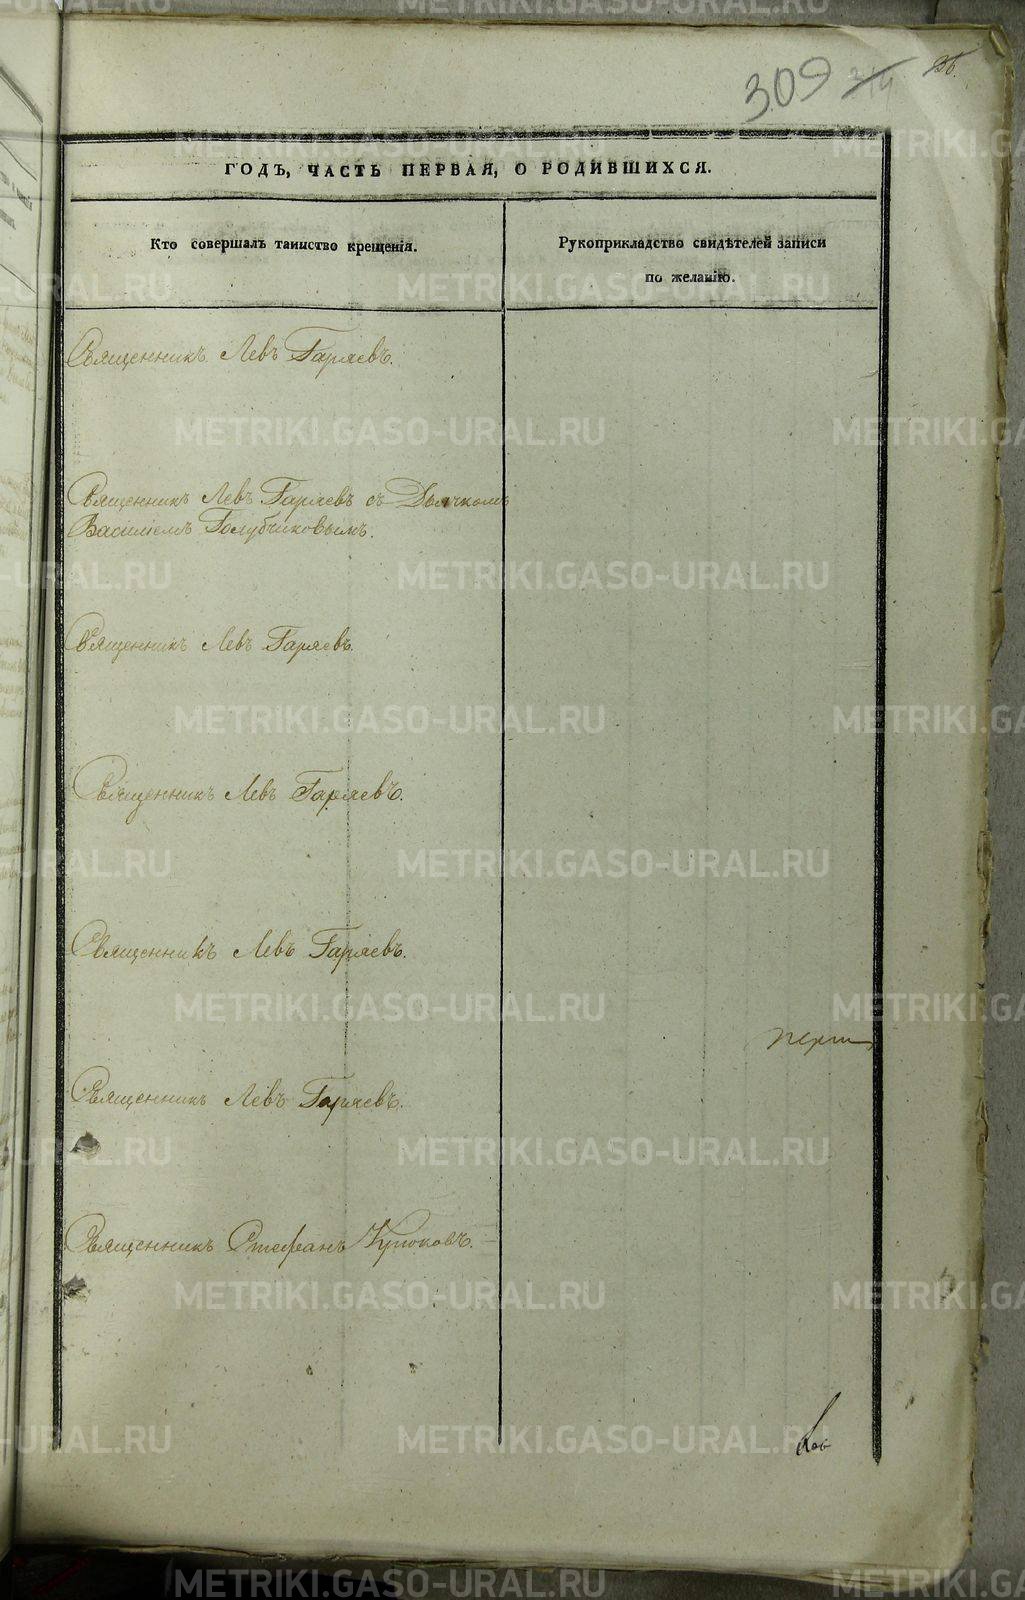 309 314 26.
ГОДЪ, ЧАСТЬ ПЕРВАЯ, О РОДИВШИХСЯ.
Кто совершалъ таинство крещенія.
Рукоприкладство свидѣтелей записи
по желанію.
Священникъ Левъ Гаряевъ.
Священникъ Левъ Гаряевъ съ Дьячкомъ
Василіемъ Голубчиковымъ.
Священникъ Левъ Гаряевъ.
Священникъ Левъ Гаряевъ.
Священникъ Левъ Гаряевъ.
Священникъ Левъ Гаряевъ.
Священникъ Стефанъ Крюковъ.
METRIKI.GASO-URAL.RU